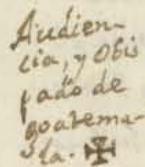 Audien-
cia, y Obis
pado de
goatema-
la. ✠